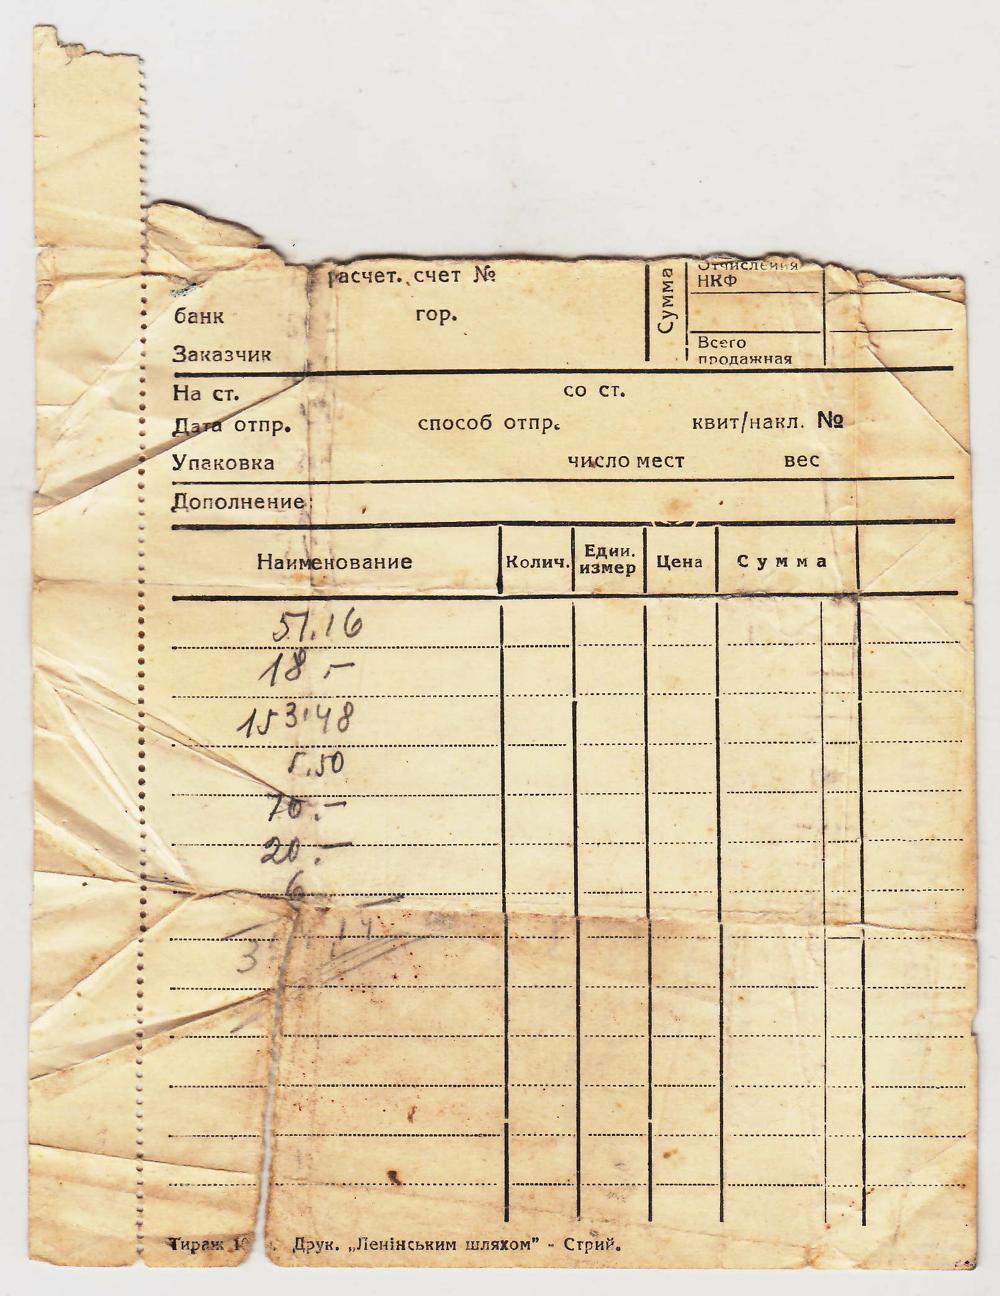 расчет. счет №
Сумма
Отчисления
НКФ
банк гор.
Всего
продажная
Заказчик
На ст. со ст.
Дата отпр. способ отпр. квит/накл. №
Упаковка число мест вес
Дополнение:
Наименование Колич. Един. измер Цена Сумма
51.16
18.-
153.48
5.50
70.-
20.-
6
3 14
Тираж Друк. „Ленінським шляхом” - Стрий.